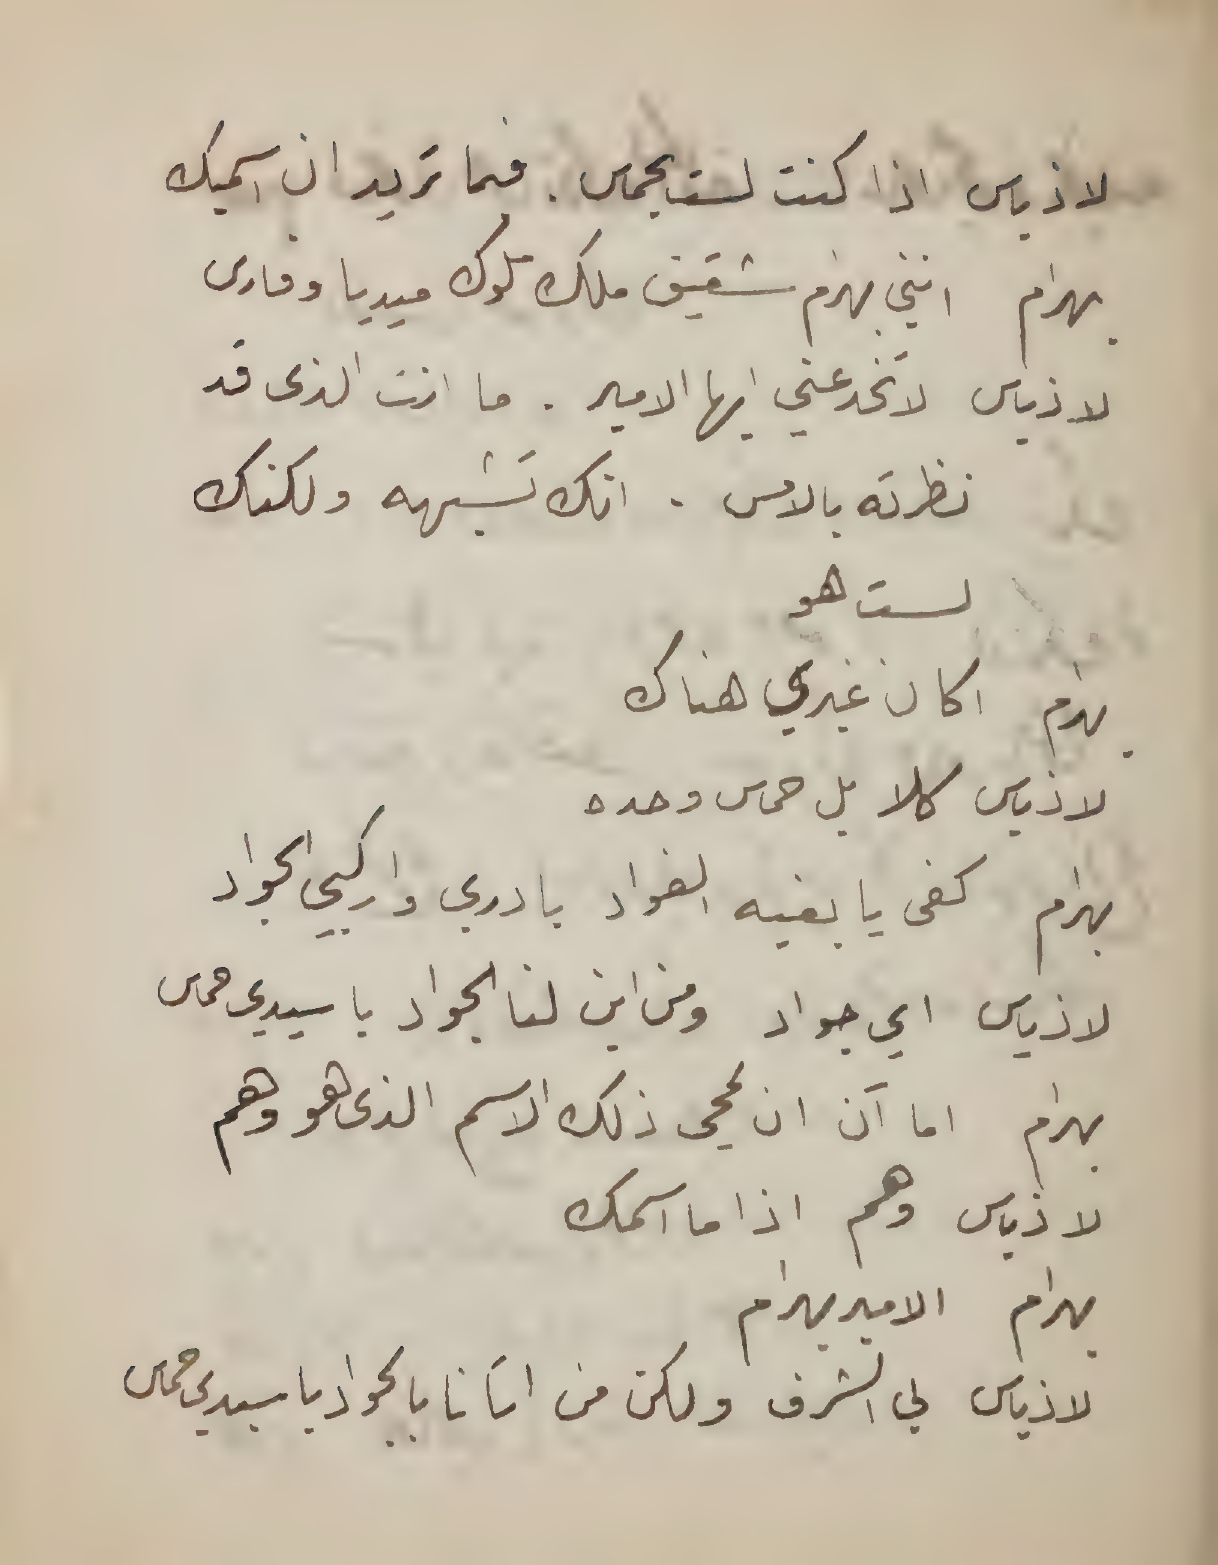 لاذياس اذا كنت لست بحماس . فما تريد ان اسميك
بهرام انني بهرام شقيق ملك ملوك ميديا وفارس
لاذياس لا تخدعني ايها الامير . ما انت الذى قد
نظرته بالامس . انك تشبهه ولكنك
لست هو
بهرام اكان غيري هناك
لاذياس كلا بل حماس وحده
بهرام كفى يا بغيه الفواد بادري واركبي الجواد
لاذياس اي جواد ومن اين لنا الجواد يا سيدي حماس
بهرام اما آن ان يمحى ذلك الاسم الذى هو وهم
لاذياس وهم اذا ما اسمك
بهرام الامير بهرام
لاذياس لي الشرف ولكن من اتانا بالجواد يا سيدي حماس